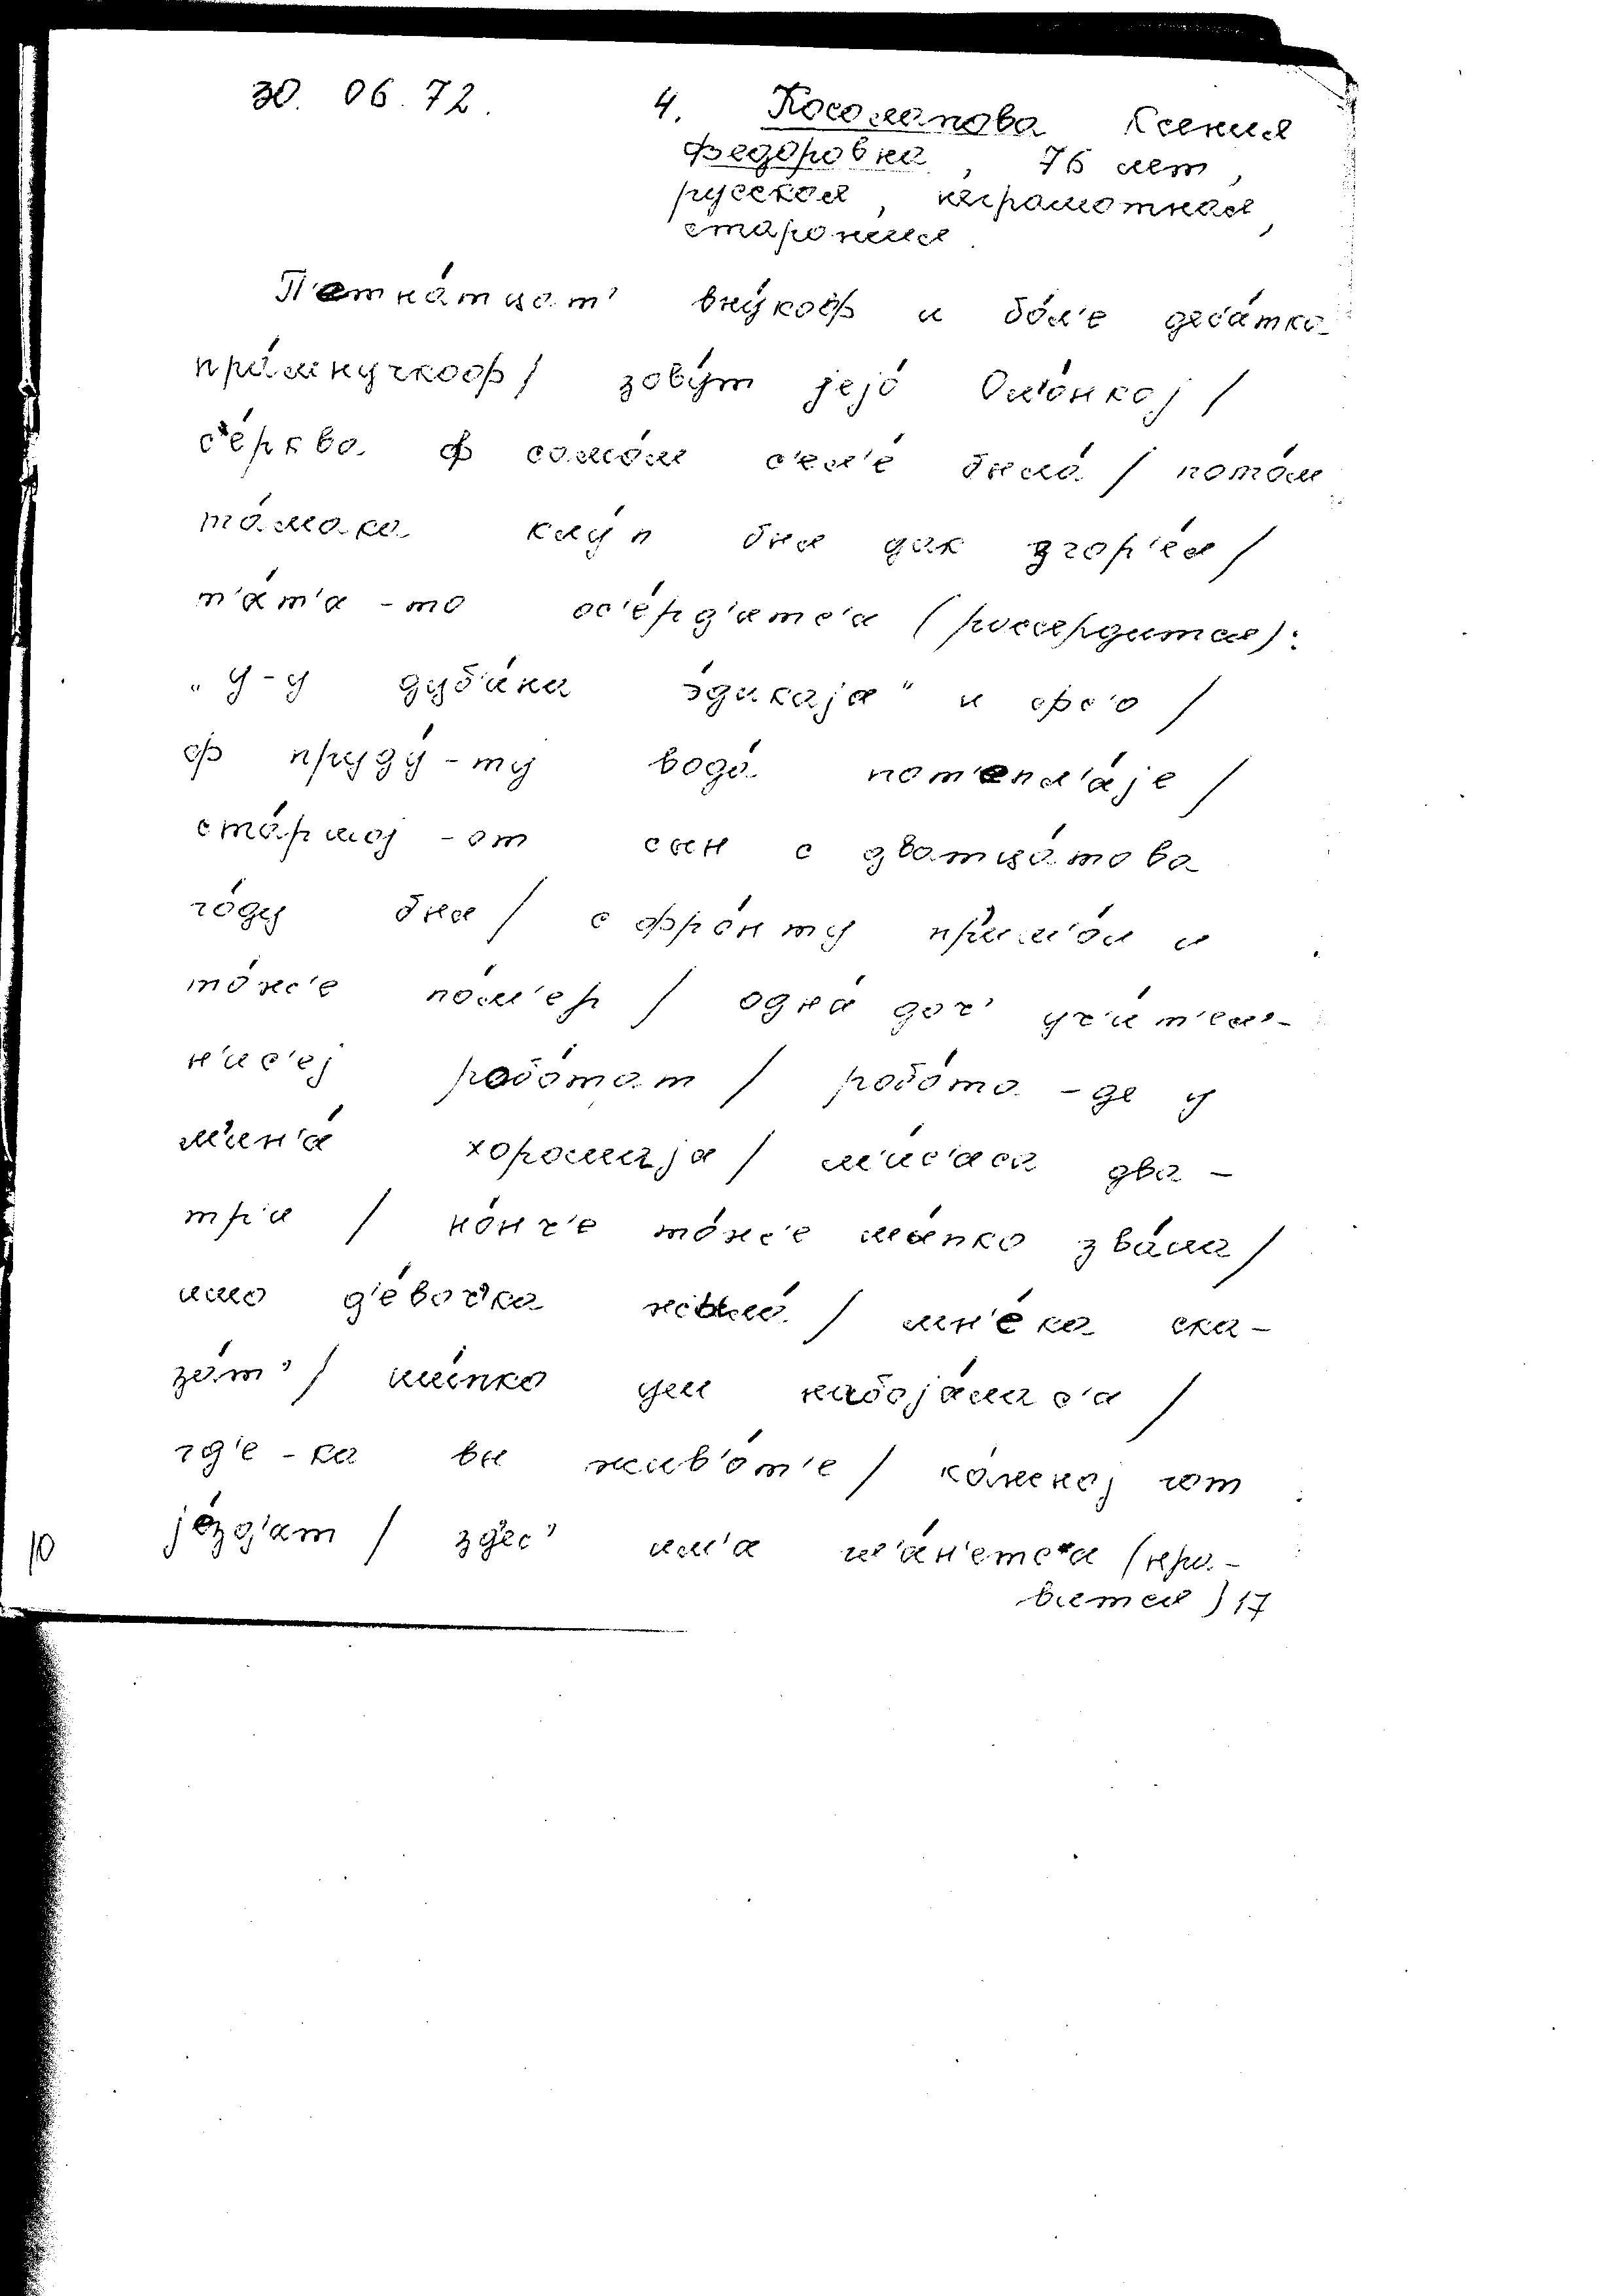 30. 06. 72. 4. Косолапова Ксения
Федоровна, 76 лет,
русская, неграмотная,
старожил.
П'етна́тцат' вну́коф и бо́л'е дес'а́тка
пра́мнучкоф / зову́т jejо́ Ол'о́нкоj /
с'е́рква ф само́м с'ел'е́ была́ / пото́м
та́мака клу́п был дак згор'е́л /
т'а́т'а-то ос'е́рд'атс'а (рассердится):
„у-у дуб'и́на э́дакаjа" и фс'о /
ф пруду́-ту вода́ пот'епл'а́jе /
ста́ршоj-от сын с дватца́това
го́ду был / с фро́нту пр'ишо́л и
то́ж'е по́м'ер / одна́ доч' уч'и́т'ел'-
н'ис'еj робо́тат / робо́та-де у
м'ин'а́ хорошаjа / м'и́с'аса два-
тр'и / но́нч'е то́ж'е ши́пко зва́ли /
ишо д'е́воч'ка жыла́ / мн'е́ка ска-
за́т' / ши́пко уш набоjа́лис'а /
гд'е-ка вы жив'о́т'е / ка́жноj гот
jе́зд'ат / зд'ес' им'а гл'а́н'етс'а (нра-
вится) 17
10